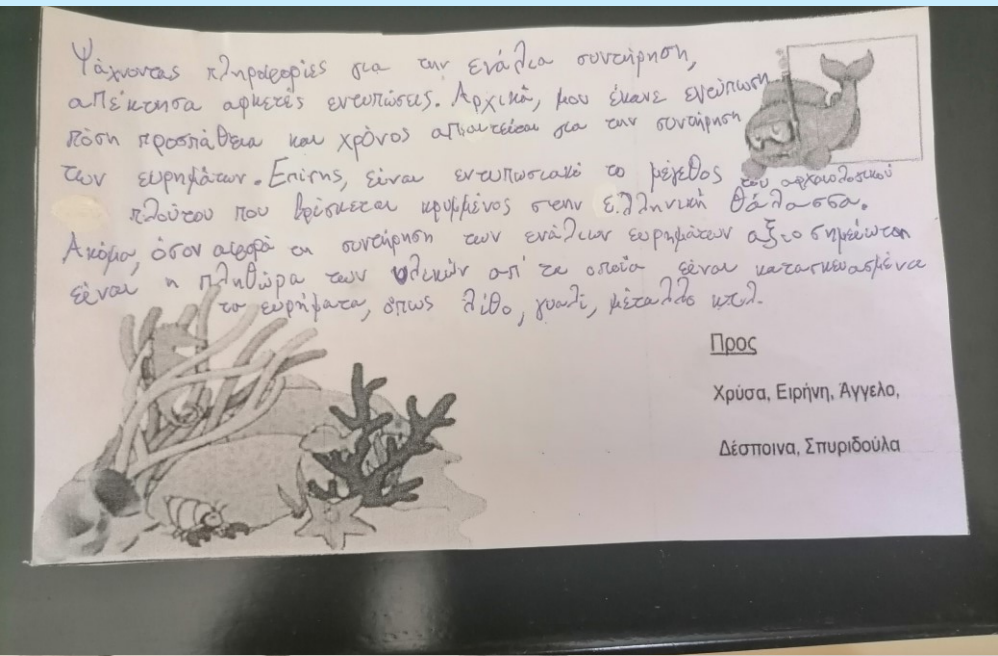 Ψάχνοντας πληροφορίες για την ενάλια συντήρηση,
απέκτησα αρκετές εντυπώσεις. Αρχικά, μου έκανε εντύπωση
πόση προσπάθεια και χρόνος απαιτείται για την συντήρηση
των ευρημάτων. Επίσης, είναι εντυπωσιακό το μέγεθος του αρχαιολογικού
πλούτου που βρίσκεται κρυμμένος στην ελληνική θάλασσα.
Ακόμα, όσον αφορά τη συντήρηση των ενάλιων ευρημάτων αξιοσημείωτη
είναι η πληθώρα των υλικών απ' τα οποία είναι κατασκευασμένα
τα ευρήματα, όπως λίθο, γυαλί, μέταλλο κτλ.
Προς
Χρύσα, Ειρήνη, Άγγελο,
Δέσποινα, Σπυριδούλα